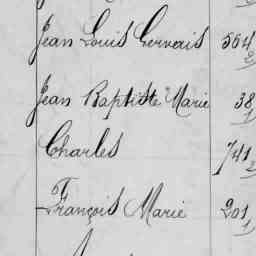 Jean Louis Gervais 564
2
Jean Baptiste Marie 38
1
Charles 741
2
François Marie 201
1